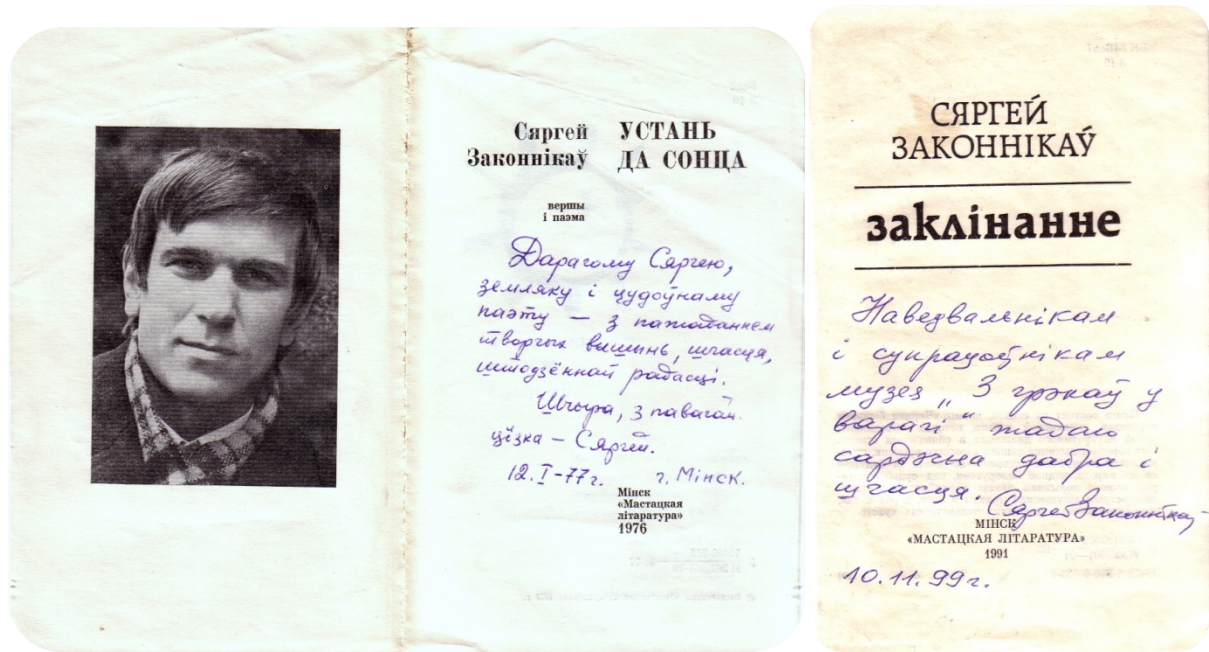 Сяргей
Законнікаў
УСТАНЬ
ДА СОНЦА
вершы
і паэма
Дарагому Сяргею,
земляку і цудоўнаму
паэту — з пажаданнем
творчых вышынь, шчасця,
штодзённай радасці.
Шчыра, з павагай.
цёзка — Сяргей.
12.I-77г. г. Мінск.
Мінск
«Мастацкая
літаратура»
1976
СЯРГЕЙ
ЗАКОННІКАЎ
заклінанне
Наведвальнікам
і супрацоўнікам
музея „З грэкаў у
варагі“ жадаю
сардэчна дабра і
шчасця.
Сяргей Законнікаў
МІНСК
«МАСТАЦКАЯ ЛІТАРАТУРА»
1991
10.11.99г.